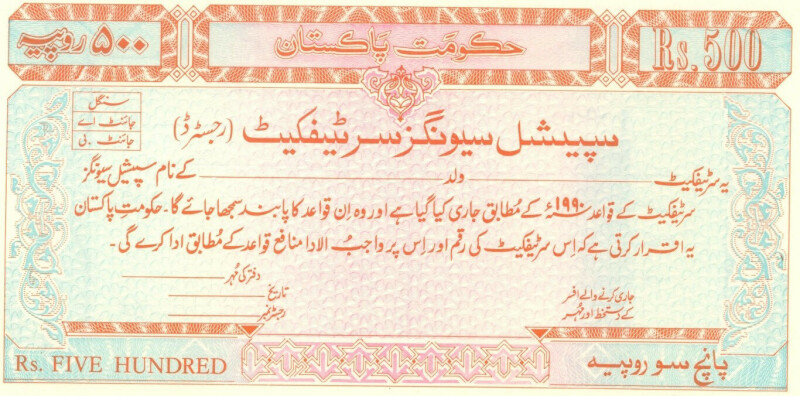 ۵۰۰ روپیہ
حکومت پاکستان
Rs. 500
سنگل
جائنٹ اے
جائنٹ ۔ بی
سپیشل سیونگز سرٹیفکیٹ (رجسٹرڈ)
یہ سرٹیفکیٹ ولد کے نام سپیشل سیونگز
سرٹیفکیٹ کے قواعد ۱۹۹۰ء کے مطابق جاری کیا گیا ہے اور وہ اِن قواعد کا پابند سمجھا جائے گا۔ حکومتِ پاکستان
یہ اقرار کرتی ہے کہ اِس سرٹیفکیٹ کی رقم اور اِس پر واجبُ الادا منافع قواعد کے مُطابق ادا کرے گی۔
دفتر کی مُہر
جاری کرنے والے افسر
کے دستخط اور مُہر
تاریخ
رجسٹر نمبر
Rs. FIVE HUNDRED
پانچ سو روپیہ